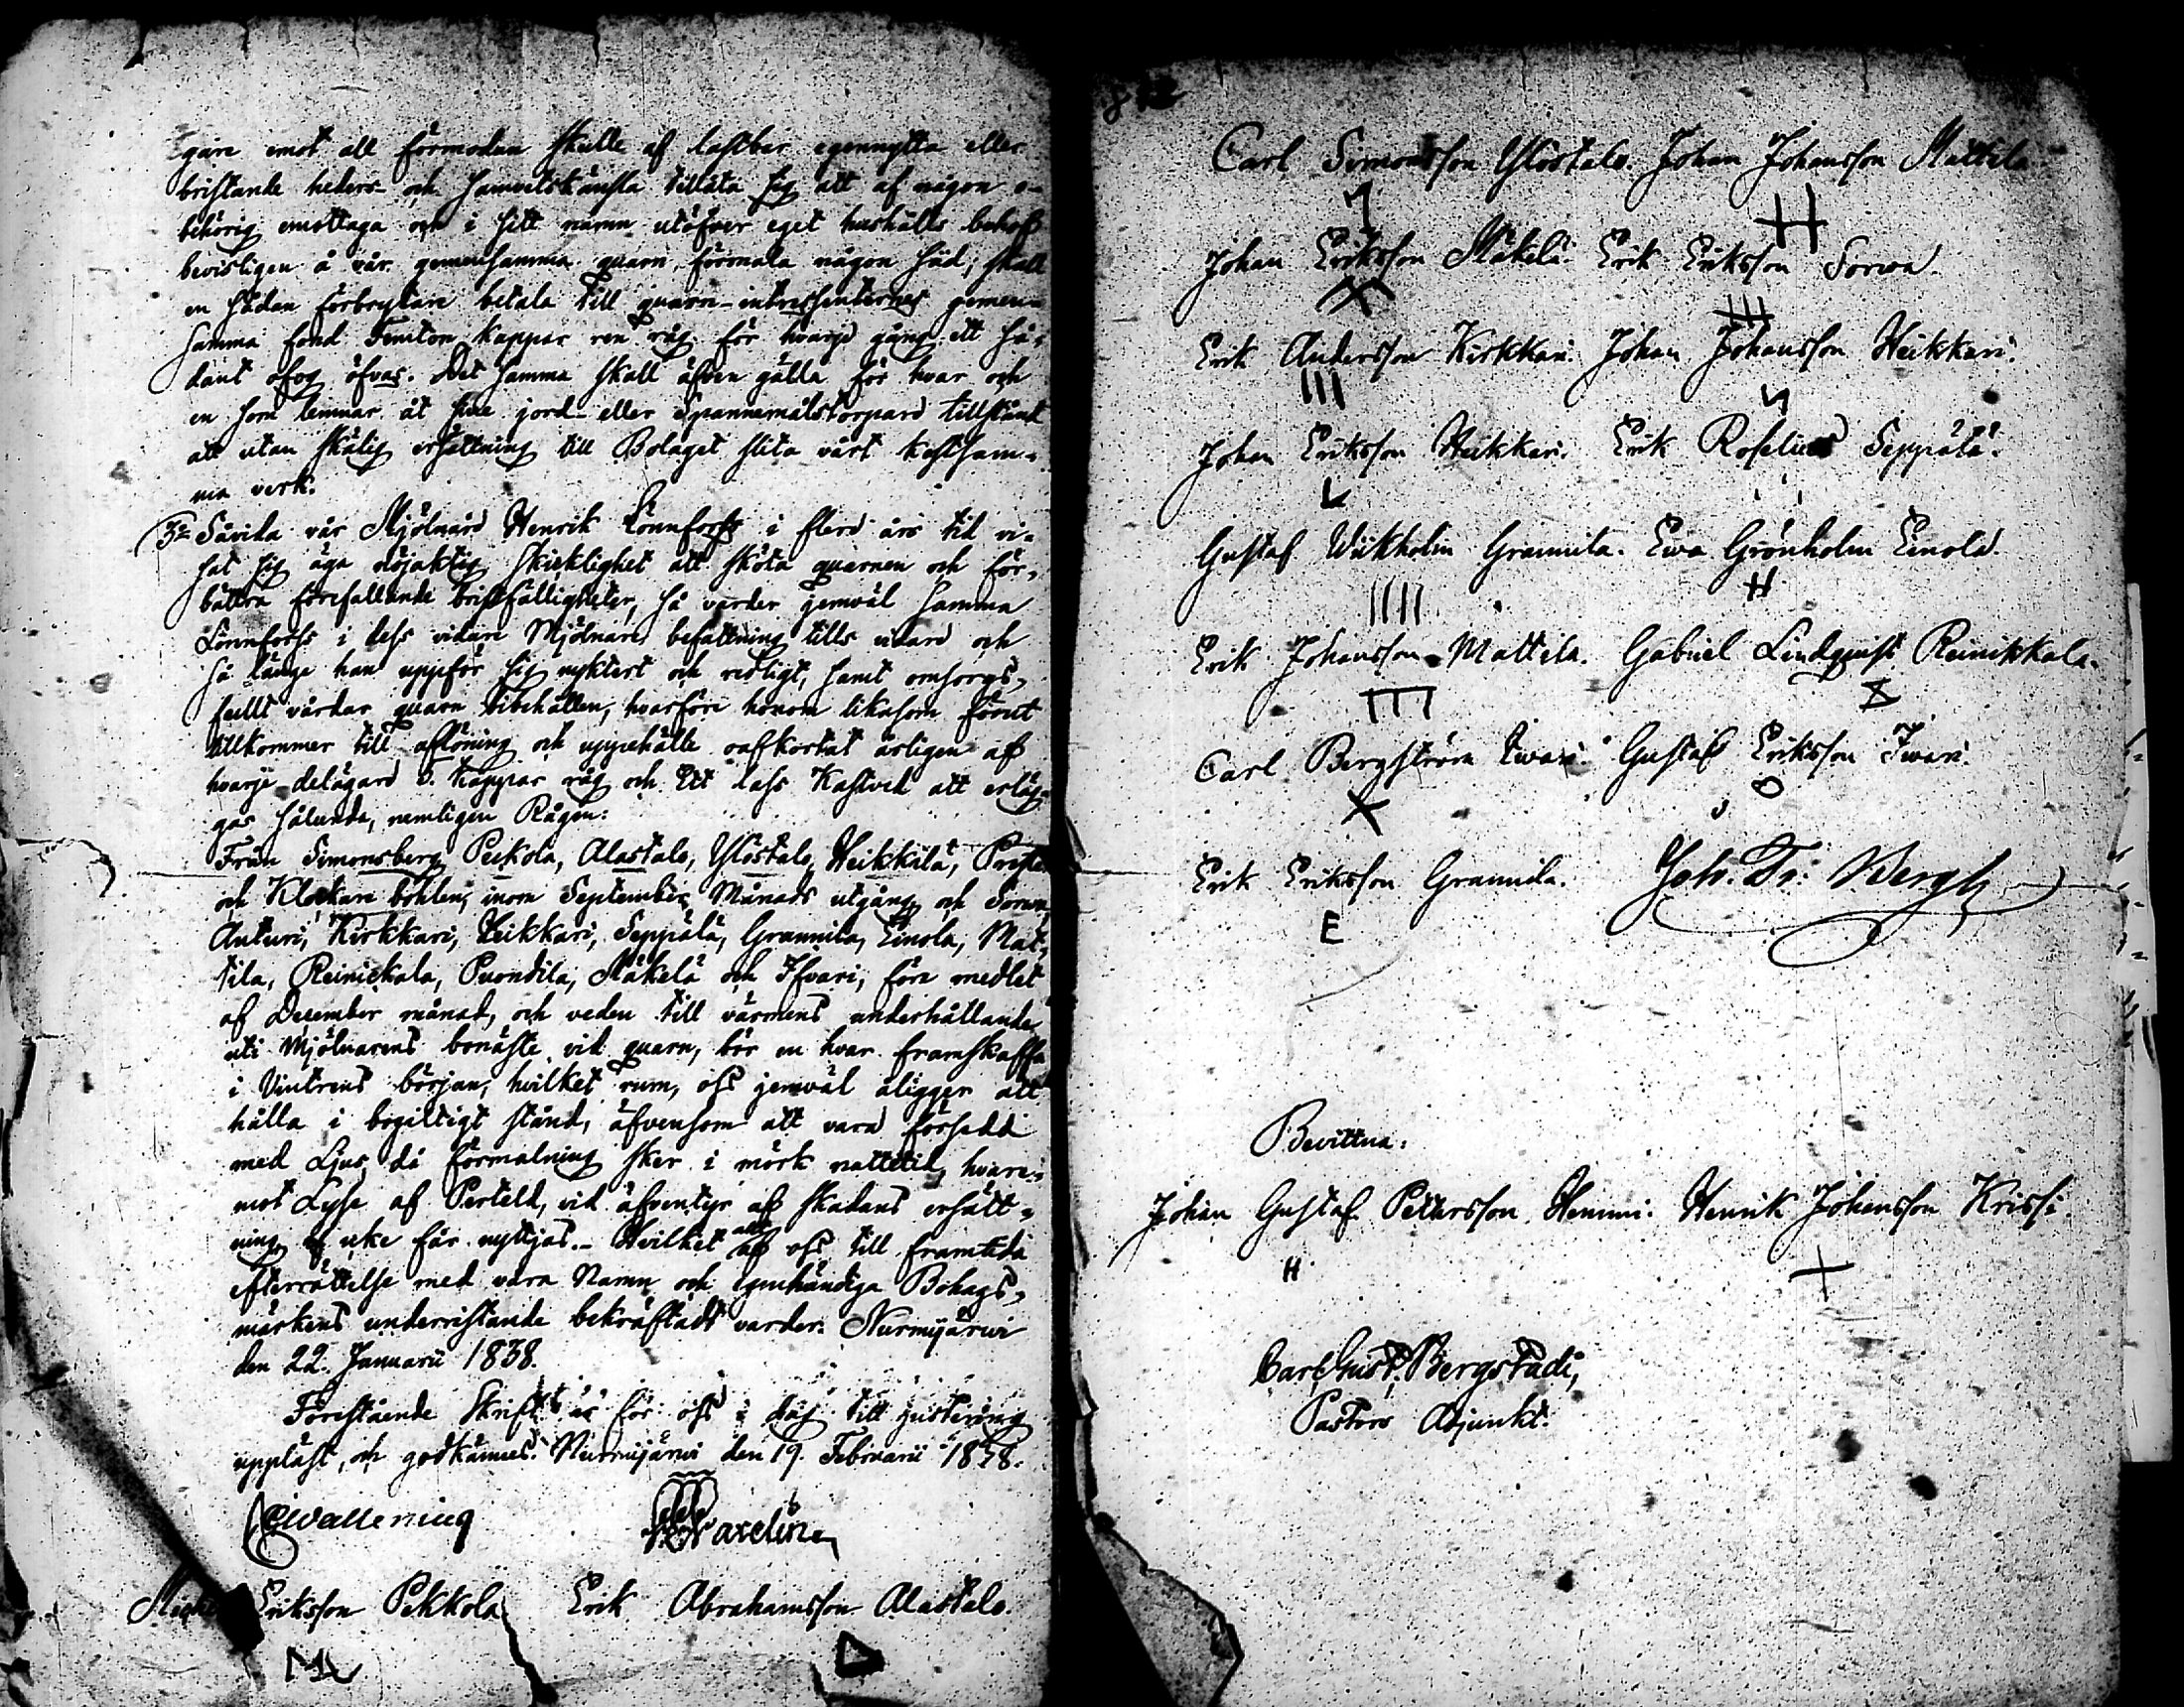 gare emot all förmodan skulle af lastbar egennytta eller
bristande heders- och samvetskänsla tillåta sig att af någon o-
behörig emottaga och i sitt namn utöfver eget hushålls behof
bevisligen å vår gemensamma quarn förmala någon säd; skall
en sådan förbrytare betala till quarn-intressenternes gemen-
samma fond Femton kappar ren råg för hvarje gång ett så-
dant ofog öfvas. Det samma skall äfven gälla för hvar och
en som lemnar åt sine jord- eller Spannemålstorpare tillstånd
att utan skälig ersättning till Bolaget slita vårt kostsam-
ma verk.
3º Såvida vår Mjölnare Henrik Lönnforss i flere års tid vi-
sat sig äga nöjaktig skicklighet att sköta quarnen och för-
bättra förefallande bristfälligheter, så varder jemväl samma
Lönnforss i dess vidare Mjölnare befattning tills vidare och
så länge han uppför sig nyktert och redligt, samt omsorgs-
fullt vårdar quarn bibehållen, hvarföre honom likasom förut
tillkommer till aflöning och uppehälle oafkortat årligen af
hvarje delägare 6. kappar råg och Ett lass Kastved att erläg-
gas sålunda, nemligen Rågen:
Från Simonsberg Pekkola, Alastalo, Ylöstalo, Heikkilä, Preste
och Klockare bohlen, inom September Månads utgång och Sorwa,
Anturi, Kirkkari, Heikkari, Seppälä, Grannila, Einola, Mat-
tila, Reinickala, Puondila, Mäkelä och Ifvari, före medlet
af December månad, och veden till värmens underhållande
uti Mjölnarens bonäste vid quarn, bör en hvar framskaffa
i Vintrens början, hvilket rum, oss jemväl åligger att
hålla i bogiltigt stånd, äfvensom att vara försedd
med Ljus, då förmalning sker i mörk nattetid, hvare-
mot Lyse af Perteld, vid äfventyr af skadans ersätt-
ning, icke får nyttjas. Hvilket allt af oss till framtida
efterrättelse med våra Namn och egenhändiga Bohags-
märkens underristande bekräftadt varder. Nurmijärwi
den 22. Januarii 1838.
Förestående Skrift är för oss i dag till justering
uppläst, och godkännes. Nurmijärwi den 19. Februarii 1838.
CWallenius
Eriksson Pekkola Erik Abrahamsson Alastalo.
Carl Simonsson Ylöstalo. Johan Johansson Mattila
H
Johan Eriksson Mäkelä. Erik Eriksson Sorwa.
X III
Erik Andersson Kirkkari. Johan Johansson Heikkari.
III
Johan Eriksson Heikkari. Erik Roselius Seppälä.
L
Gustaf Wiikholm Grannila. Ewa Grönholm Einola.
IIII H
Erik Johansson Mattila. Gabriel Lindqvist Reinikkala.
Carl Bergström Iwari. Gustaf Eriksson Iwari.
X O
Erik Eriksson Grannila. Joh. Fr: Bergh
E
Bevittna:
Johan Gustaf Pettersson Hemmi. Henrik Johansson Krissi.
H +
Carl Gust. Bergstadi,
Pastors Adjunkt.